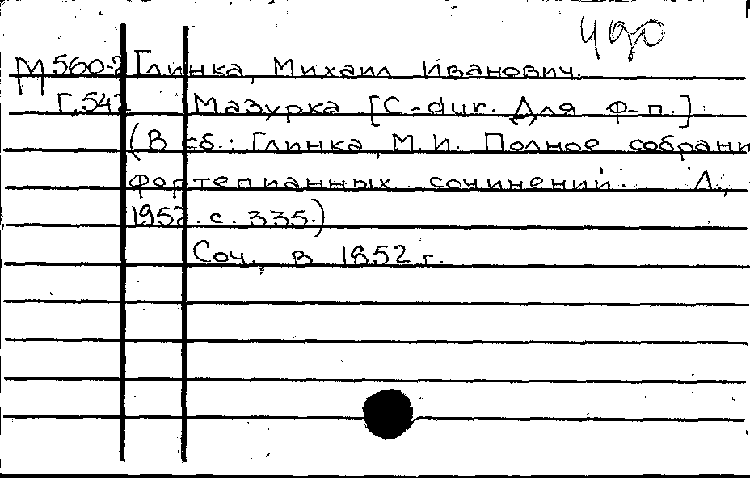 490
М560-2 Глинка, Михаил Иванович.
Г.542 Мазурка [C-dur. Для ф-п.]
(В сб.: Глинка, М.И. Полное собрани
фортепианных сочинений. Л.,
1952. с. 335.)
Соч. в 1852 г.